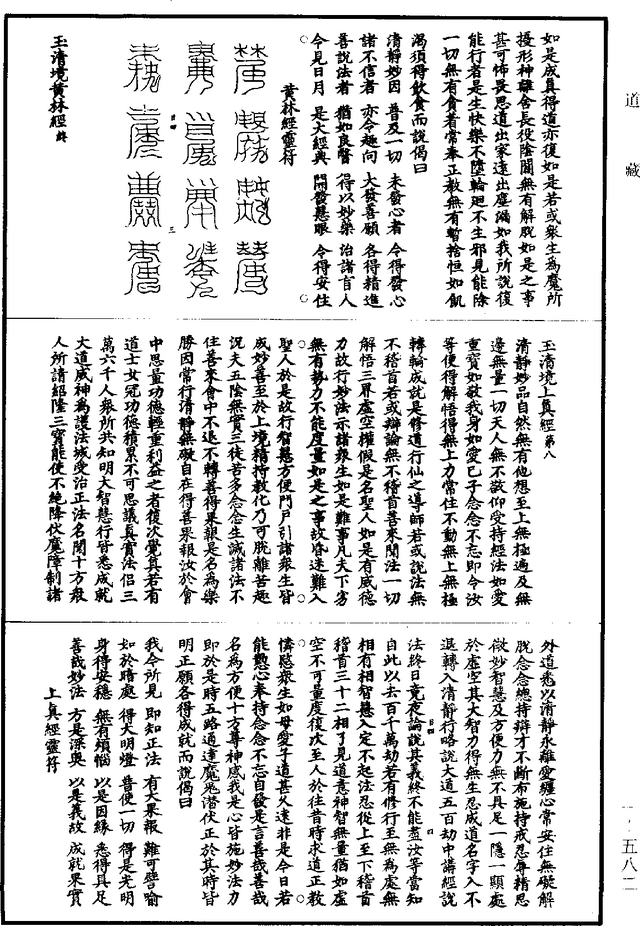 道藏
如是成真得道亦復如是若或衆生為魔所
擾形神離舍長役陰關無有解脫如是之事
甚可怖畏思道出家遠出塵編如我所說復
能行者是生快樂不墮輪廻不生邪見能除
一切無有食者常奉正教無有暫捨恒如飢
渴須得飲食而說偈曰
清靜妙因 普及一切 未發心者 令得發心
諸不信者 亦令趣向 大發善願 各得精進
善說法者 猶如良醫 得以妙藥 治諸盲人
今見日月 是大經典 開發慧眼 令得安住
黃林經靈符
玉清境黃林經終
玉清境上真經第八
清靜妙品自然無有他想至上無極遍及無
邊無量一切天人無不敬仰受持經法如愛
重寶如敬我身如愛己子念念不忘即令汝
等便得解悟得無上力常住不動無上無極
轉輪成說是修道行仙之導師若或說法無
不稽首若或辯論無不稽首善來聞法一切
解悟三界虛空權假是名聖人如是有威德
力故行妙法示諸衆生如是難事凡夫下劣
無有勢力不能度量如是之事故昏迷難入
聖人於是故行智慧方便門戶引諸衆生皆
成妙善至於上境精持教化乃可脫離苦趣
況夫五陰無實三徒苦多念念生滅諸法不
住善來會中不退不轉善得果報是名為樂
勝因常行清靜無礙自在得善果報汝於會
中思量功德輕重利益之者復次覺真若有
道士女冠功德積累不可思議真實法侶三
萬六千人衆所共知明大智慧行皆悉成就
大道威神為護法城受治正法名聞十方衆
人所請紹隆三寶能使不絕降伏魔障制諸
外道悉以清靜永離愛纏心常安住無礙解
脫念念總持辯才不斷布施持戒忍辱精思
微妙智慧及方便力無不具足一隱一顯處
於虛空其大智力得無生忍成道名字入不
退轉入清靜行略說大道五百劫中講經說
法終日竟夜論說其義終不能盡汝等當知
自此以去百千萬劫若有修行至無為處無
相有相智慧入定不起法忍從上至下稽首
稽首三十二相了見道意神智無量猶如虛
空不可量度復次至人於往昔時求道正教
憐愍衆生如母愛子道甚久遠非是今日若
能懃心奉持念念不忘自發是言善哉善哉
名為方便十方尊神感我是心皆施妙法力
即於是時五路通達魔鬼潜伏正於其時皆
明正願各得成就而說偈曰
我今所見 即知正法 有大果報 難可譬喻
如於暗處 得大明燈 普使一切 得是光明
身得安穩 無有煩惱 以是因緣 悉得具足
善哉妙法 方是深奥 以是義故 成就果實
上真經靈符
一・五八二